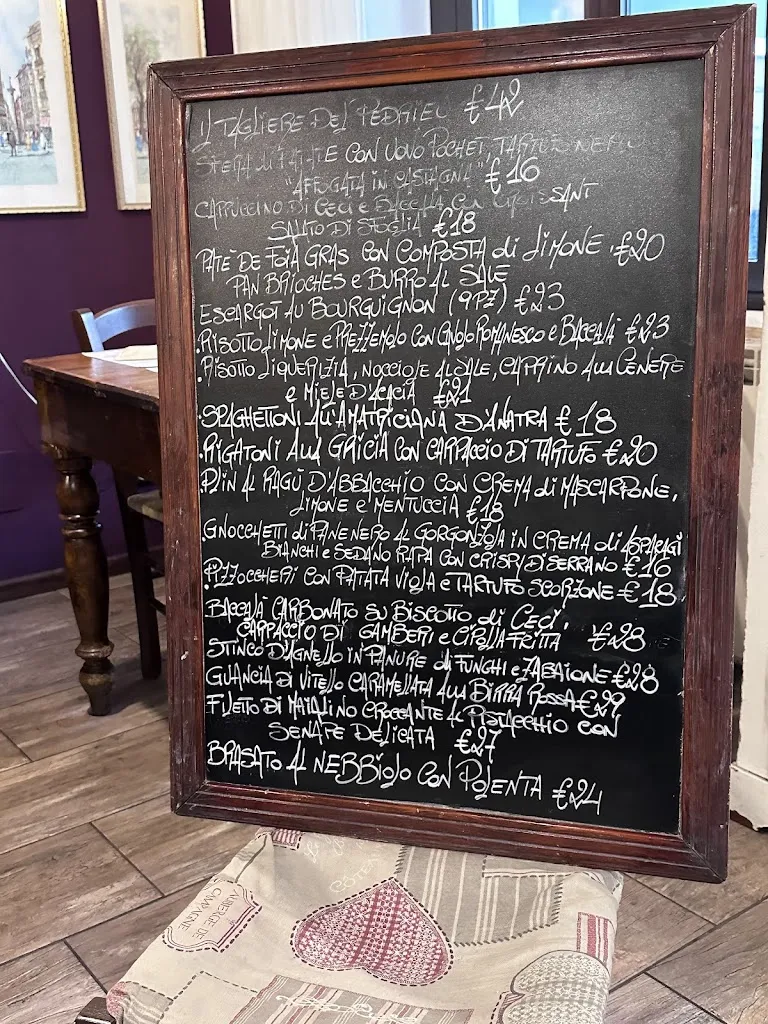 1) TAGLIERE DEL PEDRIEL €42
SFERA DI PATATE CON UOVO POCHET, TARTUFO NERO
"AFFOGATA IN CASTAGNA" €16
CAPPUCCINO DI CECI e BACCALÀ CON CROISSANT
SALATO DI SFOGLIA €18
PATÈ DE FOIA GRAS CON COMPOSTA di LIMONE, €20
PAN BRIOCHES e BURRO AL SALE
ESCARGOT AU BOURGUIGNON (9PZ) €23
.RISOTTO LIMONE e PREZZEMOLO CON GNOJO ROMANESCO e BACCALÀ €23
.RISOTTO LIQUERIZIA, NOCCIOLE AL SALE, CAPRINO ALLA CENERE
e MIELE D'ACACIA €21
.SPAGHETTONI ALL'AMATRICIANA D'ANATRA €18
.RIGATONI ALLA GRICIA CON CARPACCIO DI TARTUFO €20
.PLIN AL RAGÙ D'ABBACCHIO CON CREMA di MASCARPONE,
LIMONE e MENTUCCIA €18
.GNOCCHETTI di PANE NERO AL GORGONZOLA IN CREMA di ASPARAGI
BIANCHI e SEDANO RAPA CON CRISPY DI SERRANO €16
.PIZZOCCHERI CON PATATA VIOLA e TARTUFO SCORZONE €18
BACCALÀ CARBONATO SU BISCOTTO di CECI,
CARPACCIO DI GAMBERI e CIPOLLA FRITTA €28
STINCO D'AGNELLO IN PANURE di FUNGHI e ZABAIONE €28
GUANCIA DI VITELLO CARAMELLATA ALLA BIRRA ROSSA €29
FILETTO DI MAIALINO CROCCANTE AL PISTACCHIO CON
SENAPE DELICATA €27
BRASATO AL NEBBIOLO CON POLENTA €24
AUBERGE DE
CAMPAGNE